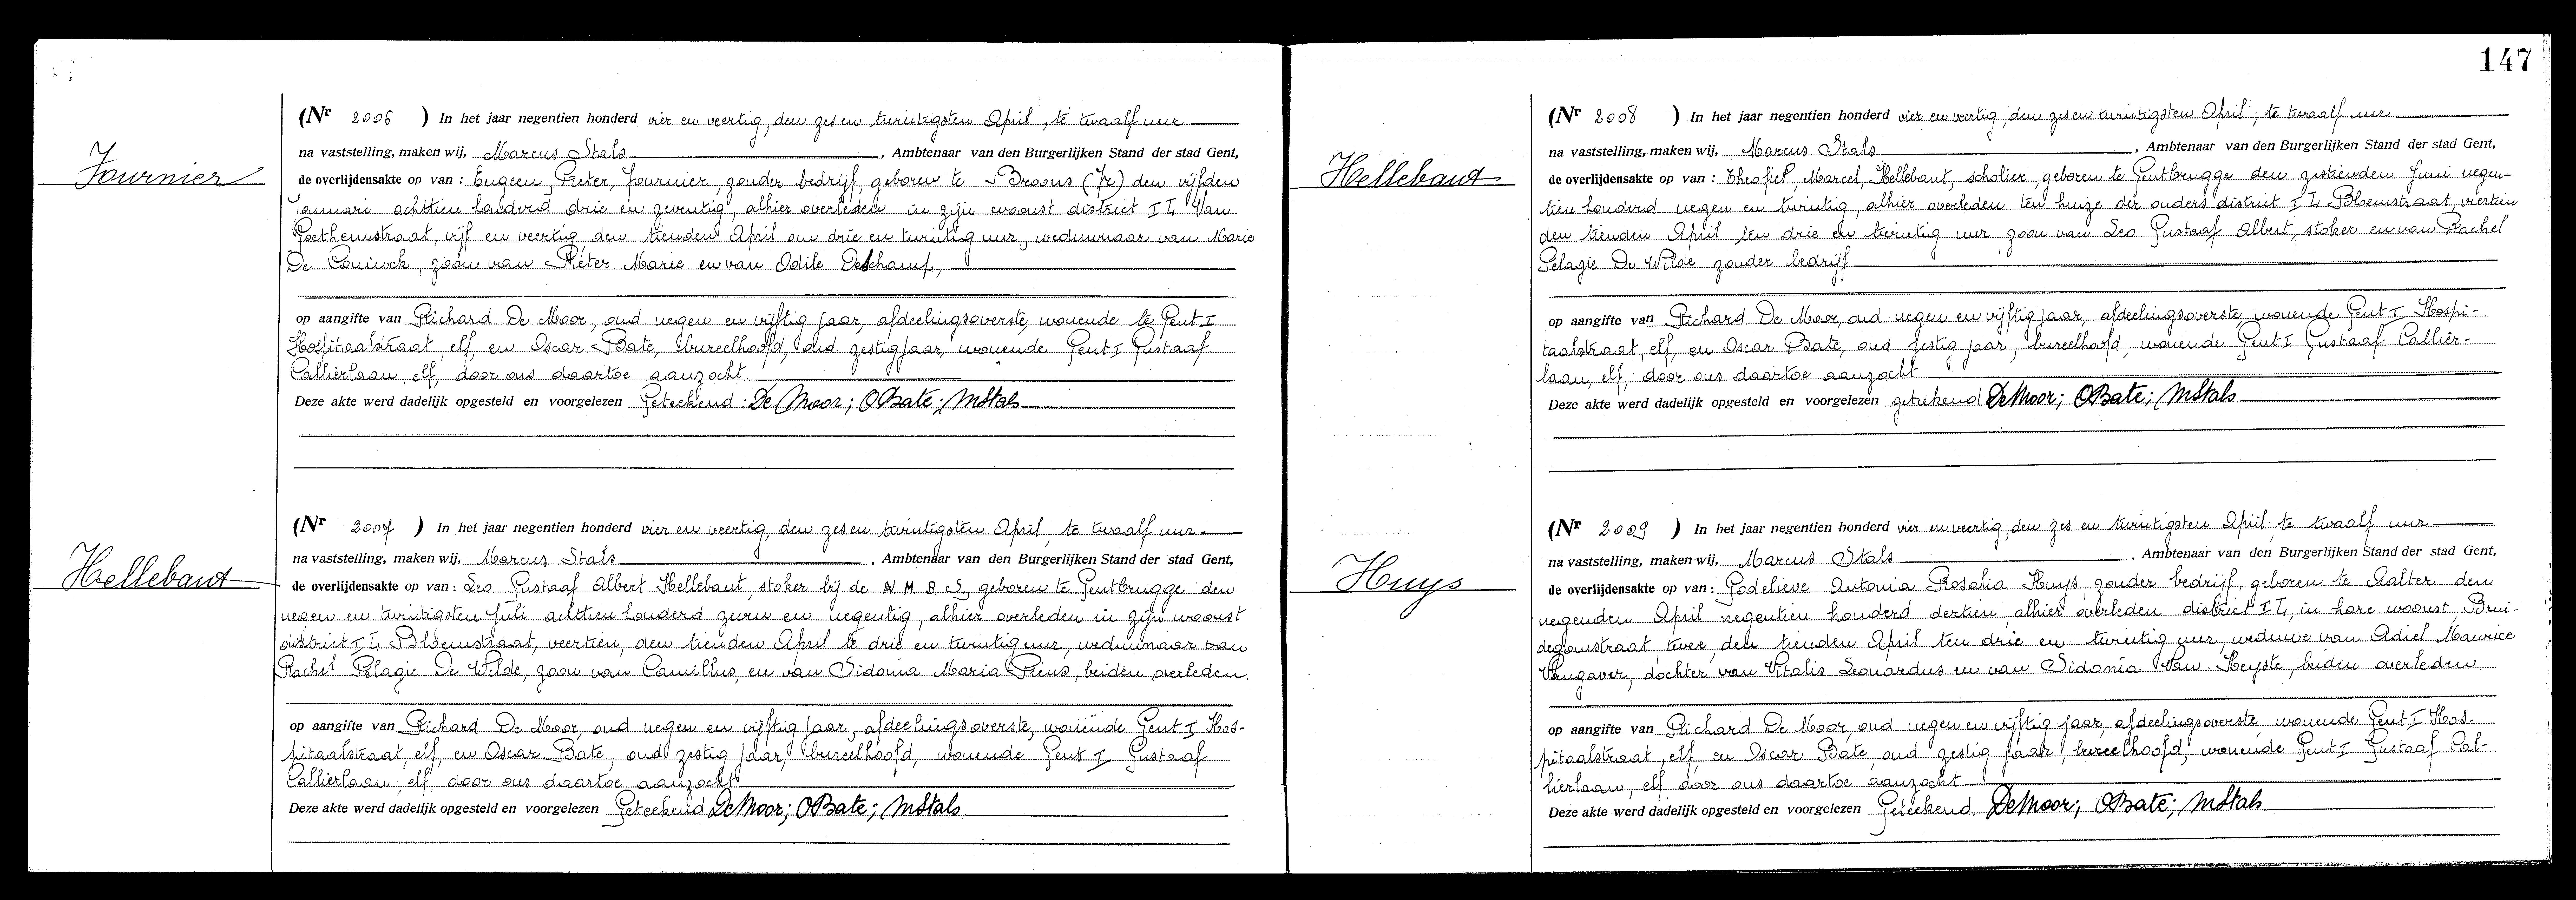 147
Fournier
(Nr 2006 ) In het jaar negentien honderd vier en veertig, den zes en twintigsten April, te twaalf uur
na vaststelling, maken wij, Marcus Stals, Ambtenaar van den Burgerlijken Stand der stad Gent,
de overlijdensakte op van : Eugeen, Pieter, Fournier, zonder bedrijf, geboren te Broons (Fr) den vijfden
Januari achttien honderd drie en zeventig, alhier overleden in zijn woonst district I L Van
Goethemstraat, vijf en veertig den tienden April om drie en twintig uur, weduwnaar van Marie
De Coninck, zoon van Pieter Marie en van Odile Deschamp,
op aangifte van Richard De Moor, oud negen en vijftig jaar, afdeelingsoverste, wonende te Gent I
Hospitaalstraat elf, en Oscar Bate, bureelhoofd, oud zestig jaar, wonende Gent I Gustaaf
Callierlaan, elf, door ons daartoe aanzocht.
Deze akte werd dadelijk opgesteld en voorgelezen Geteekend : De Moor; OBate; MStals
Hellebaut
(Nr 2007 ) In het jaar negentien honderd vier en veertig, den zes en twintigsten April, te twaalf uur
na vaststelling, maken wij, Marcus Stals, Ambtenaar van den Burgerlijken Stand der stad Gent,
de overlijdensakte op van : Leo Gustaaf Albert Hellebaut, stoker bij de N.M.B.S, geboren te Gentbrugge den
negen en twintigsten Juli achttien honderd zeven en negentig, alhier overleden in zijn woonst
district I L, Bloemstraat, veertien, den tienden April te drie en twintig uur, weduwnaar van
Rachel Pelagie De Wilde, zoon van Camillus, en van Sidonia Maria Piens, beiden overleden.
op aangifte van Richard De Moor, oud negen en vijftig jaar, afdeelingsoverste, wonende Gent I Hos-
pitaalstraat, elf, en Oscar Bate, oud zestig jaar, bureelhoofd, wonende Gent I Gustaaf
Callierlaan, elf door ons daartoe aanzocht
Deze akte werd dadelijk opgesteld en voorgelezen Geteekend DeMoor; OBate; MStals
Hellebaut
(Nr 2008 ) In het jaar negentien honderd vier en veertig, den zes en twintigsten April, te twaalf uur
na vaststelling, maken wij, Marcus Stals, Ambtenaar van den Burgerlijken Stand der stad Gent,
de overlijdensakte op van : Theofiel, Marcel, Hellebaut, scholier, geboren te Gentbrugge den zestienden Juni negen-
tien honderd negen en twintig, alhier overleden ten huize der ouders district I L Bloemstraat, viertien
den tienden April ten drie en twintig uur, zoon van Leo Gustaaf Albert, stoker en van Rachel
Pelagie De Wilde zonder bedrijf
op aangifte van Richard De Moor, oud negen en vijftig jaar, afdeelingsoverste, wonende Gent I Hospi-
taalstraat, elf, en Oscar Bate, oud zestig jaar, bureelhoofd, wonende Gent I Gustaaf Callier-
laan, elf, door ons daartoe aanzocht
Deze akte werd dadelijk opgesteld en voorgelezen getekend DeMoor; OBate; MStals
Huys
(Nr 2009 ) In het jaar negentien honderd vier en veertig, den zes en twintigsten April, te twaalf uur
na vaststelling, maken wij, Marcus Stals, Ambtenaar van den Burgerlijken Stand der stad Gent,
de overlijdensakte op van : Godelieve Antonia Rosalia Huys, zonder bedrijf, geboren te Aalter den
negenden April negentien honderd dertien, alhier overleden district I L, in hare woonst Brui-
degomstraat, twee, den tienden April ten drie en twintig uur, weduwe van Adiel Maurice
dochter van Vitalis Leonardus en van Sidonia Van Heyste, beiden overleden
op aangifte van Richard De Moor, oud negen en vijftig jaar, afdeelingsoverste, wonende Gent I Hos-
pitaalstraat, elf, en Oscar Bate, oud zestig jaar, bureelhoofd, wonende Gent I Gustaaf Cal-
lierlaan, elf, door ons daartoe aanzocht
Deze akte werd dadelijk opgesteld en voorgelezen Geteekend. DeMoor; OBate; MStals